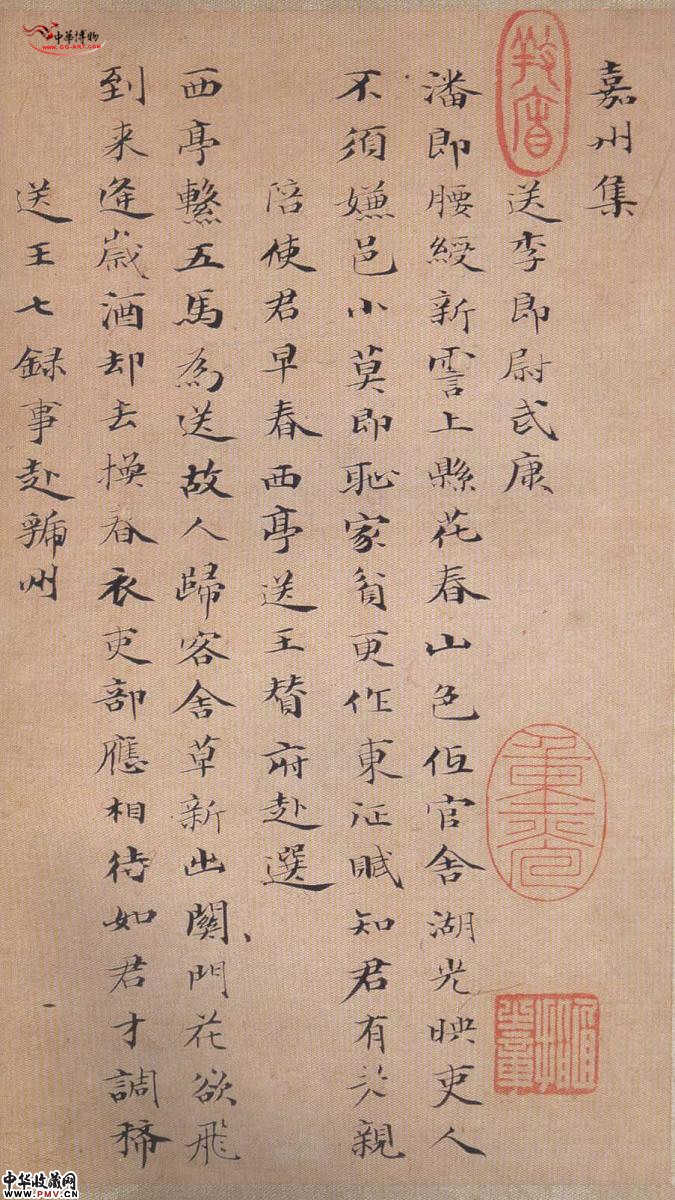 嘉州集
送李郎尉武康
潘郎腰綬新霅上縣花春山色低官舍湖光映吏人
不須嫌邑小莫即恥家貧更作東征賦知君有老親
陪使君早春西亭送王贊府赴選
西亭繫五馬為送故人歸客舍草新出關門花欲飛
到来逢歲酒却去換春衣吏部應相待如君才調稀
送王七録事赴虢州
中華博物
WWW.GG-ART.COM
中华收藏网
WWW.PMV.CN